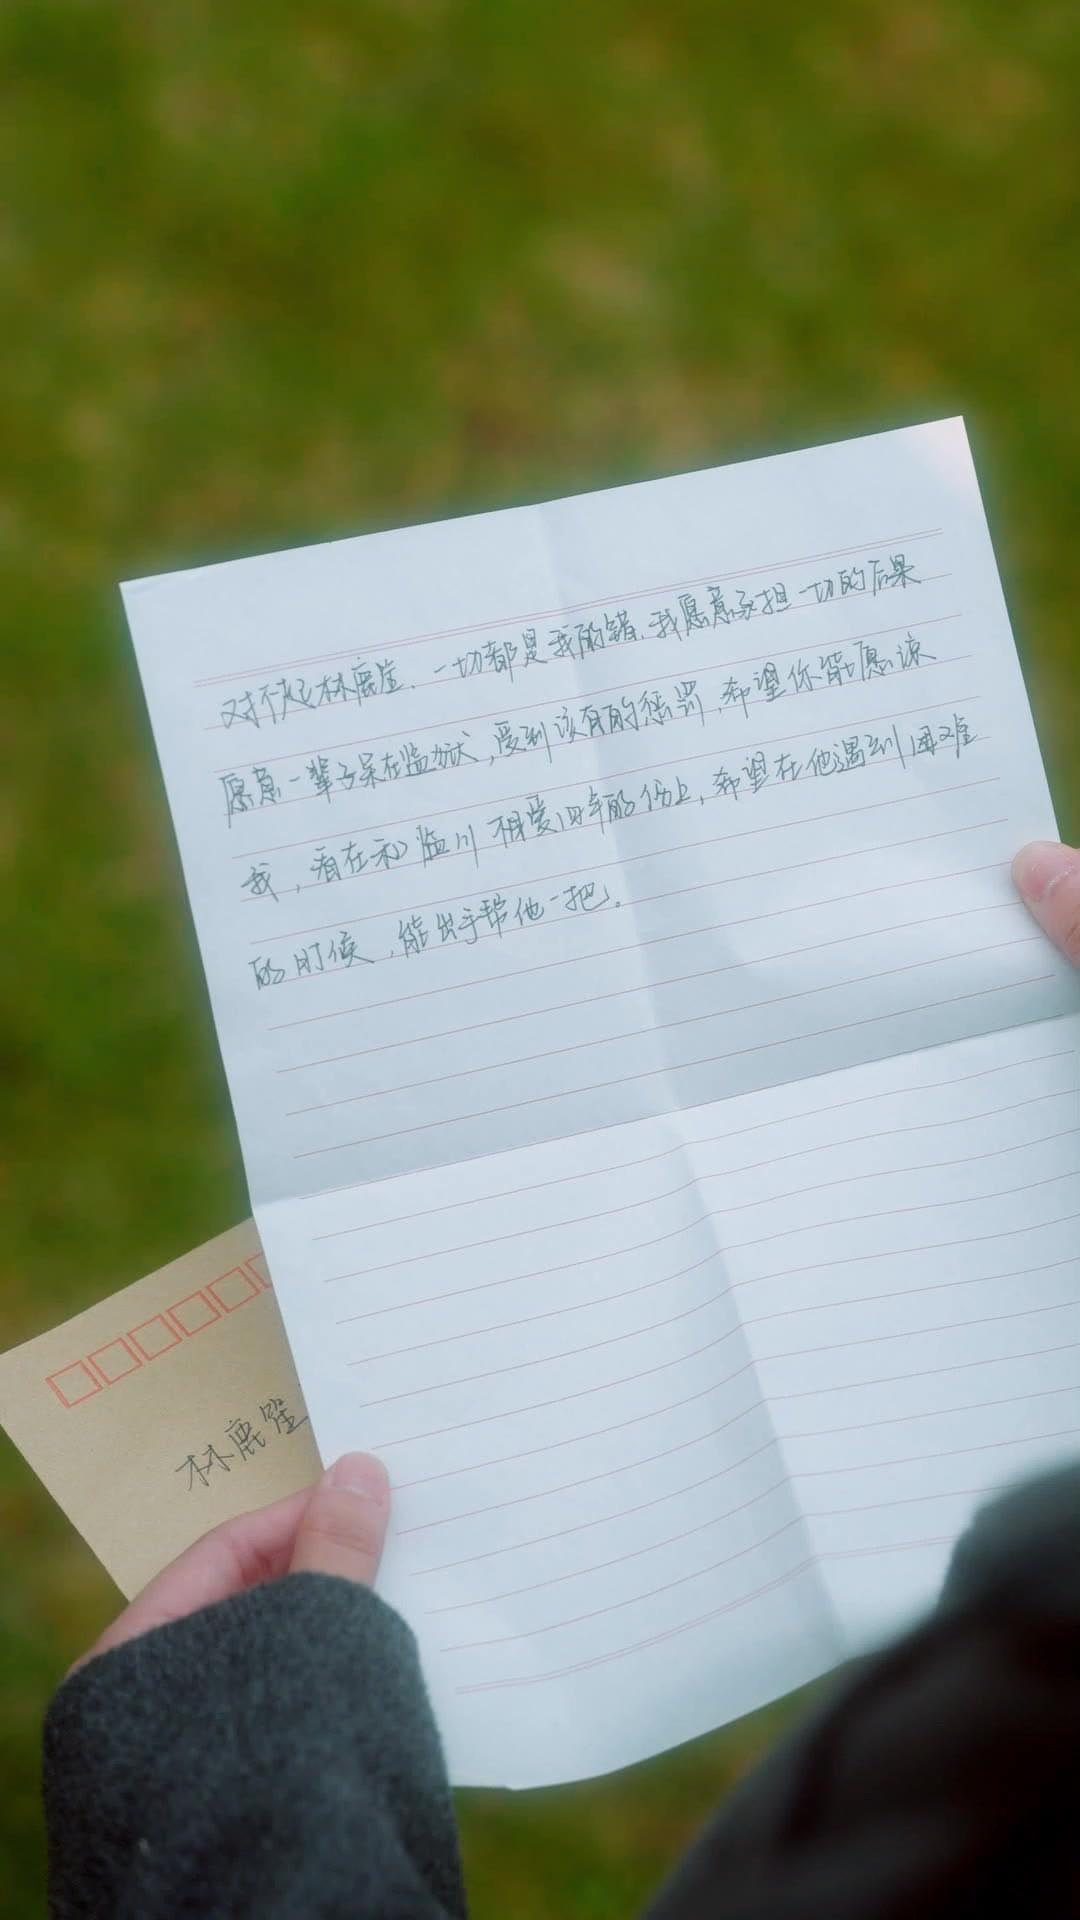 对不起林鹿笙，一切都是我的错，我愿意承担一切的后果
愿意一辈子呆在监狱，受到该有的惩罚，希望你能愿谅
我，看在和临川相爱四年的份上，希望在他遇到困难
的时候，能出手帮他一把。
林鹿笙